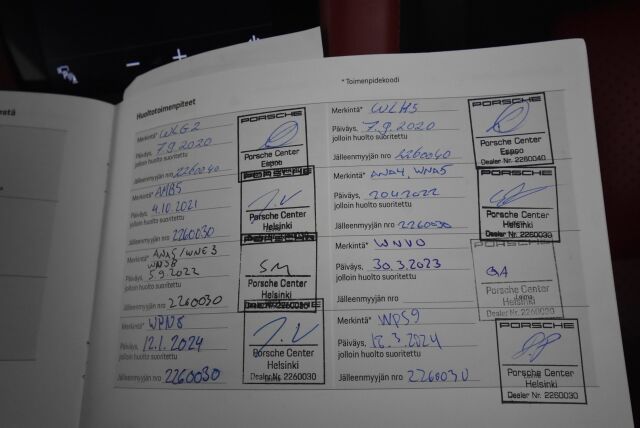 * Toimenpidekoodi
Huoltotoimenpiteet
Merkintä* WLG2
Päiväys, 7.9.2020
jolloin huolto suoritettu
Jälleenmyyjän nro 2260040
PORSCHE
Porsche Center
Espoo
Merkintä* WLH5
Päiväys, 7.9.2020
jolloin huolto suoritettu
Jälleenmyyjän nro 2260040
PORSCHE
Porsche Center
Espoo
Dealer Nr. 2260040
Merkintä* ANB5
Päiväys, 4.10.2021
jolloin huolto suoritettu
Jälleenmyyjän nro 2260030
PORSCHE
J.V
Porsche Center
Helsinki
Merkintä* ANA4, WNA5
Päiväys,
jolloin huolto suoritettu
Jälleenmyyjän nro 2260030
PORSCHE
Porsche Center
Helsinki
Dealer Nr. 2260030
Merkintä* ANA5/WNE3
Päiväys, 5.9.2022
jolloin huolto suoritettu
Jälleenmyyjän nro 2260030
PORSCHE
SM
Porsche Center
Helsinki
Merkintä* WNV0
Päiväys, 30.3.2023
jolloin huolto suoritettu
Jälleenmyyjän nro
Porsche Center
Helsinki
Dealer Nr. 2260030
Merkintä* WPN8
Päiväys, 12.1.2024
jolloin huolto suoritettu
Jälleenmyyjän nro 2260030
J.V
Porsche Center
Helsinki
Dealer Nr. 2260030
Merkintä* WPS9
Päiväys, 12.3.2024
jolloin huolto suoritettu
Jälleenmyyjän nro 2260030
PORSCHE
Porsche Center
Helsinki
Dealer Nr. 2260030